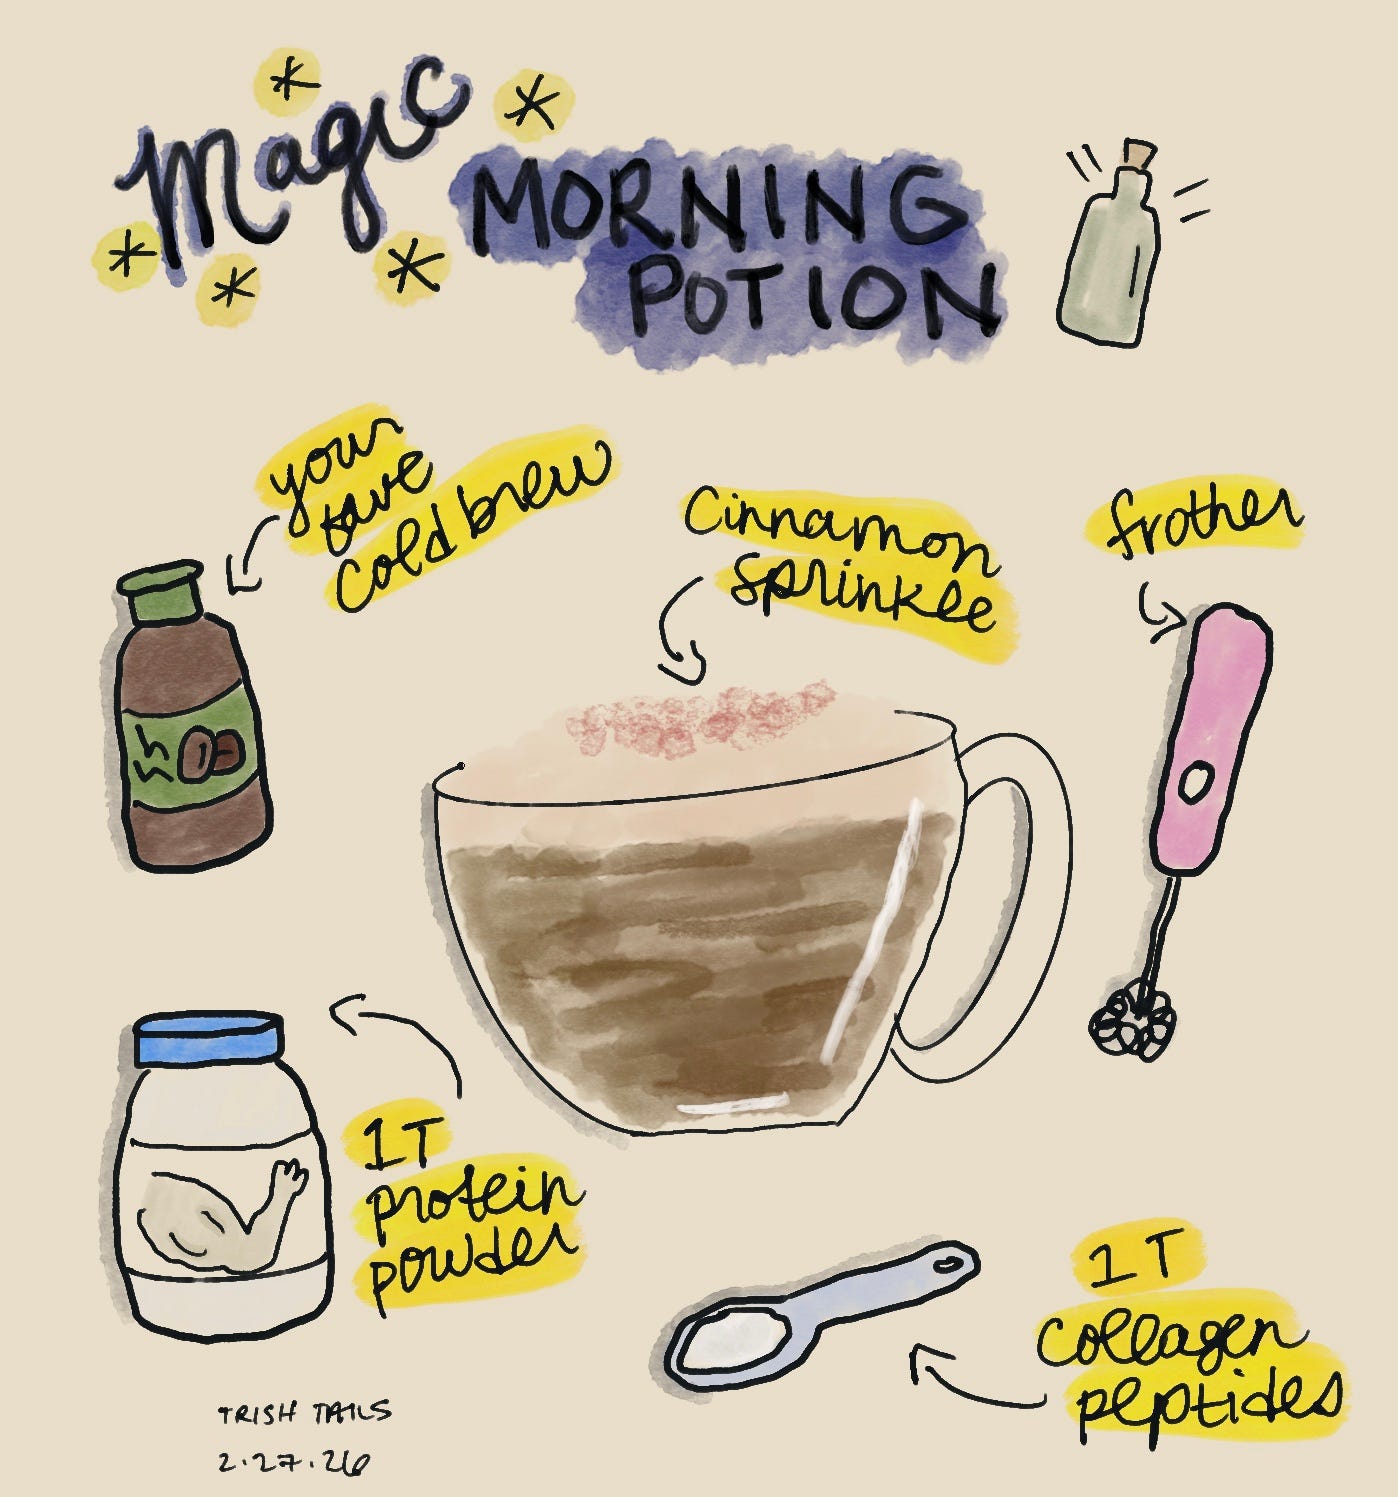 Magic
MORNING
POTION
your
fave
cold brew
Cinnamon
sprinkle
frother
1T
protein
powder
1 T
collagen
peptides
TRISH TAILS
2.27.26